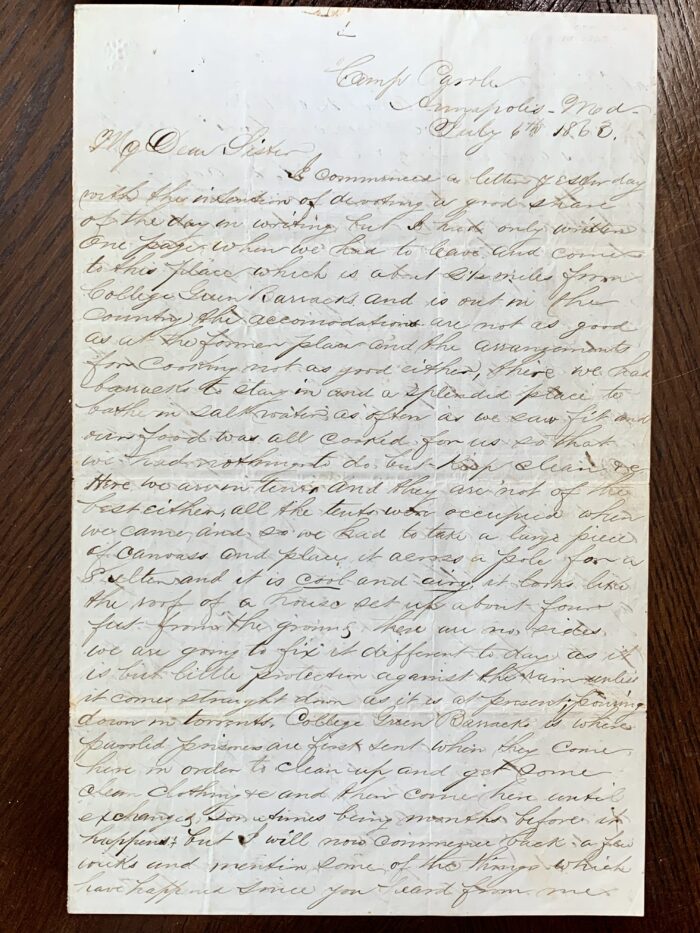 Camp Parole
Annapolis - Md -
July 6th 1863.
My Dear Sister
I commenced a letter yesterday
with the intention of devoting a good share
of the day in writing but I had only written
One page when we had to leave and come
to this place which is about 2½ miles from
College Green Barracks and is out in the
Country, the accomodations are not as good
as at the former place and the arrangements
for cooking not as good either, there we had
barracks to stay in and a splendid place to
bathe in salt water as often as we saw fit and
our food was all cooked for us so that
we had nothing to do but keep clean &c
Here we are in tents and they are not of the
best either, all the tents were occupied when
we came and so we had to take a large piece
of Canvass and place it across a pole for a
Shelter and it is cool and airy, it looks like
the roof of a house set up about four
feet from the ground, there are no sides
we are going to fix it different to day as it
is but little protection against the rain unless
it comes straight down as it is at present, pouring
down in torrents. College Green Barracks is where
paroled prisoners are first sent when they come
here in order to clean up and get some
clean clothing &c and then come here until
exchanged, sometimes being months before it
happens; but I will now commence back a few
weeks and mention some of the things which
have happened since you heard from me